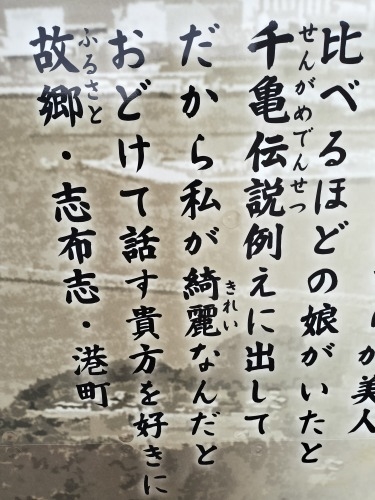 が美人
比べるほどの娘がいたと
千亀伝説例えに出して
せんがめでんせつ
だから私が綺麗なんだと
きれい
おどけて話す貴方を好きに
故郷・志布志・港町
ふるさと